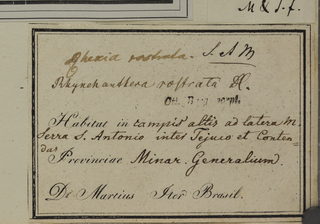 M & S. f.
Rhexia rostrata. S. A M
Rhynchanthera rostrata H.
Habitat in campis altis ad latera m
Serra S. Antonio inter Tejuco et Conten=
das Provinciae Minar. Generalium.
De Martius Iter Brasil.